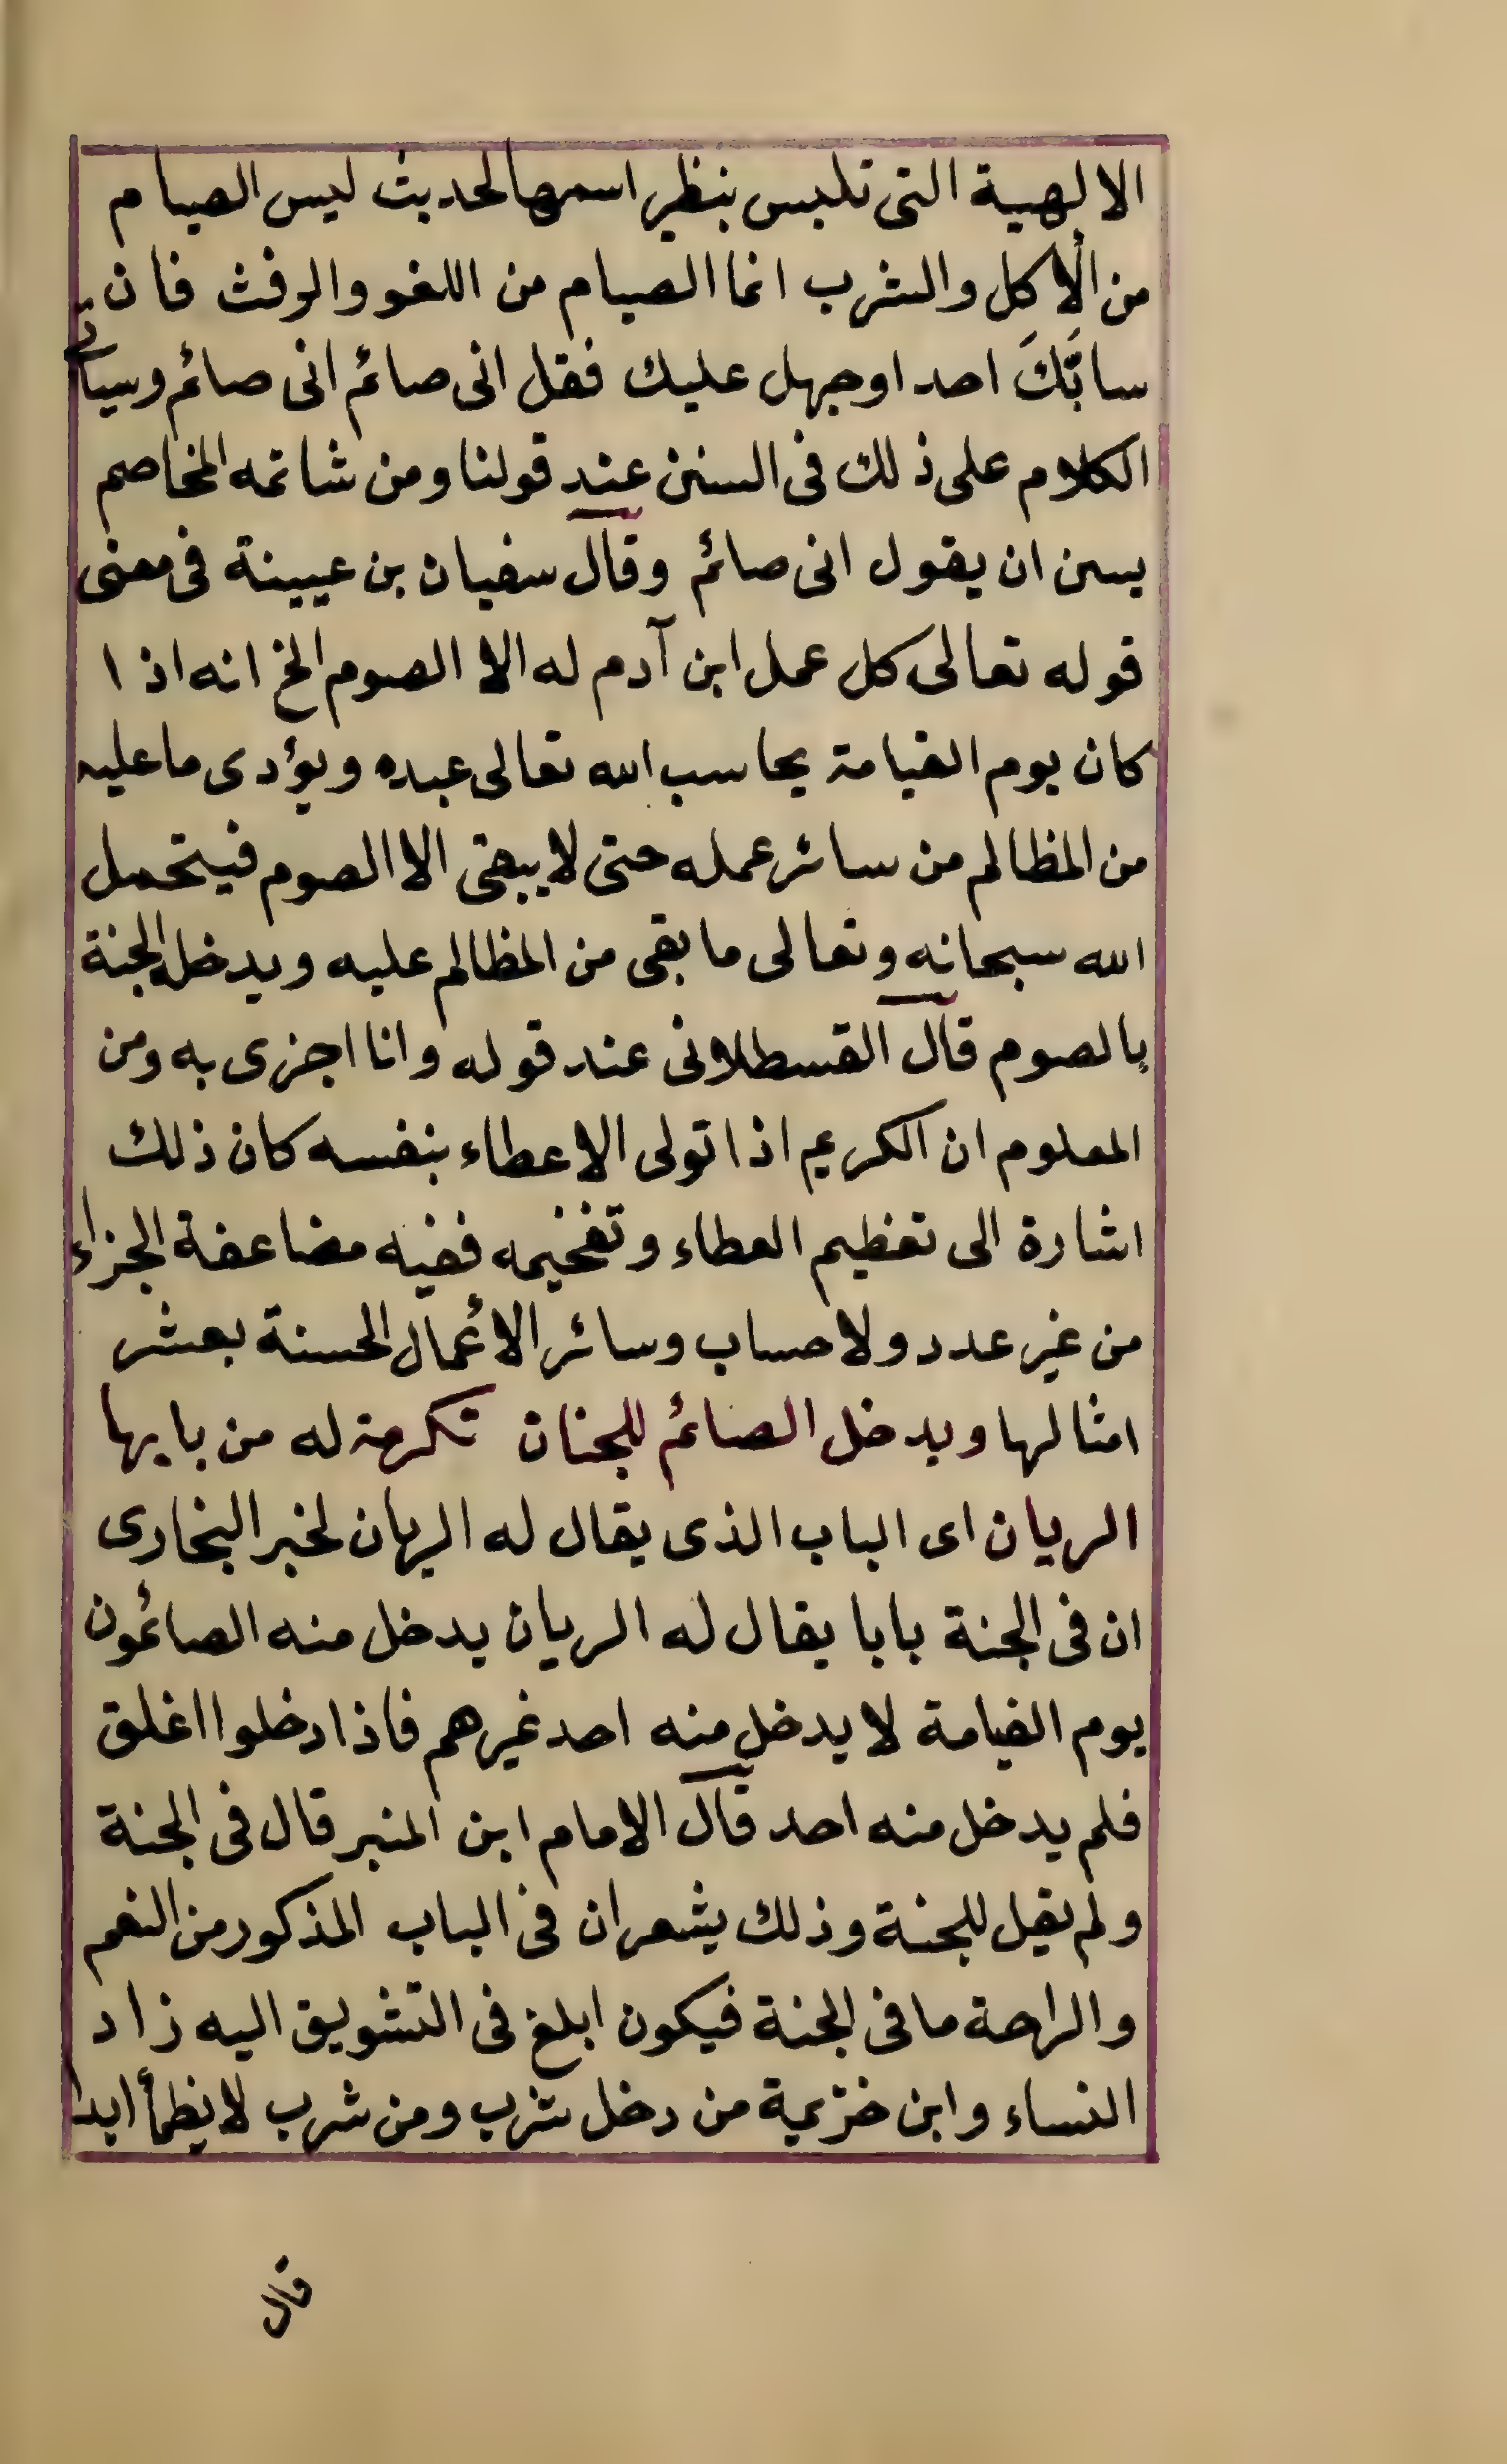 الالهية التى تلبس بنظير اسمها لحديث ليس الصيام
من الأكل والشرب انما الصيام من اللغو والرفث فان
سابَّكَ احد اوجهل عليك فقل انى صائم انى صائم وسيأتى
الكلام على ذلك فى السنن عند قولنا ومن شاتمه المخاصم
يسن ان يقول انى صائم وقال سفيان بن عيينة فى معنى
قوله تعالى كل عمل ابن آدم له الا الصوم الخ انه اذا
كان يوم القيامة يحاسب الله تعالى عبده ويؤدى ماعليه
من المظالم من سائر عمله حتى لا يبقى الا الصوم فيتحمل
الله سبحانه وتعالى ما بقى من المظالم عليه ويدخله الجنة
بالصوم قال القسطلانى عند قوله وانا اجزى به ومن
المعلوم ان الكريم اذا تولى الاعطاء بنفسه كان ذلك
اشارة الى تعظيم العطاء وتفخيمه ففيه مضاعفة الجزاء
من غير عدد ولا حساب وسائر الأعمال الحسنة بعشر
امثالها ويدخل الصائم للجنان تكرمة له من بابها
الريان اى الباب الذى يقال له الريان لخبر البخارى
ان فى الجنة بابا يقال له الريان يدخل منه الصائمون
يوم القيامة لا يدخل منه احد غيرهم فاذا دخلوا اغلق
فلم يدخل منه احد قال الامام ابن المنير قال فى الجنة
ولم يقل للجنة وذلك يشعر ان فى الباب المذكور من النعم
والراحة ما فى الجنة فيكون ابلغ فى التشويق اليه زاد
النساء وابن خزيمة من دخل شرب ومن شرب لا يظمأ ابدا
قال